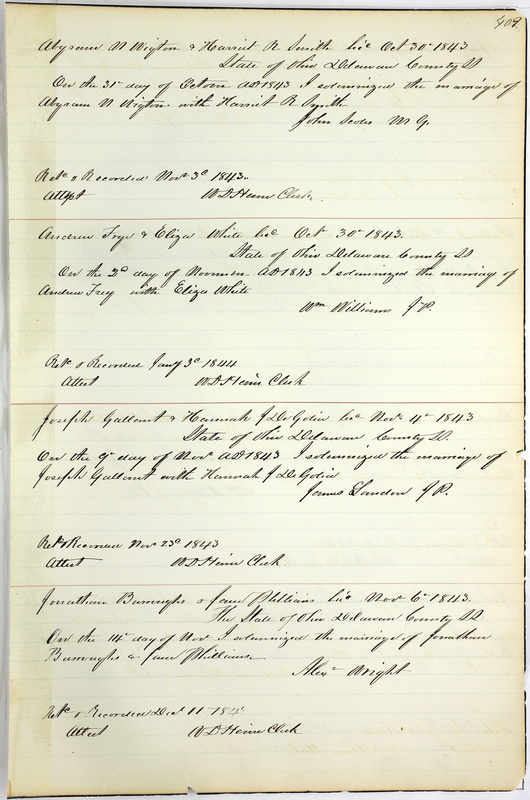 409.
Abyram N Wigton & Harriet R Smith lic Oct 30th 1843
State of Ohio Delaware County SS
On the 31st day of Octom AD 1843 I solemnized the marriage of
Abyram N Wigton with Harriet R Smith
John Scoles M G.
Retd & Recorded Novr 3d 1843.
Attest W D Heim Clerk.
Andrew Frye & Eliza White lic Oct 30th 1843.
State of Ohio Delaware County SS
On the 2d day of Novmem AD 1843 I solemnized the marriag of
Andrew Frey with Eliza White
Wm Williams J P.
Retd & Recorded Jany 3d 1844
Attest W D Heim Clerk
Joseph Gallant & Hannah J DeGolier lic Novr 4th 1843
State of Ohio Delaware County SS.
On the 9th day of Novr AD 1843 I solemnized the marriage of
Joseph Gallant with Hannah J DeGolier
James Landon J P.
Retd & Recorded Novr 23d 1843
Attest W D Heim Clerk
Jonathan Burroughs & Jane Williams lic Novr 6th 1843.
The State of Ohio Delaware County SS
On the 14th day of Nov I solemnized the marriage of Jonathan
Burroughs & Jane Williams
Alexr Wright
Retd & Recorded Decr 11th 184
Attest W D Heim Clerk